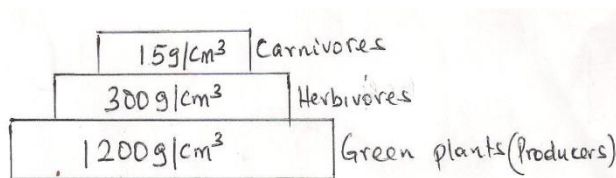 15g/cm³ Carnivores
300g/cm³ Herbivores
1200g/cm³ Green plants (Producers)